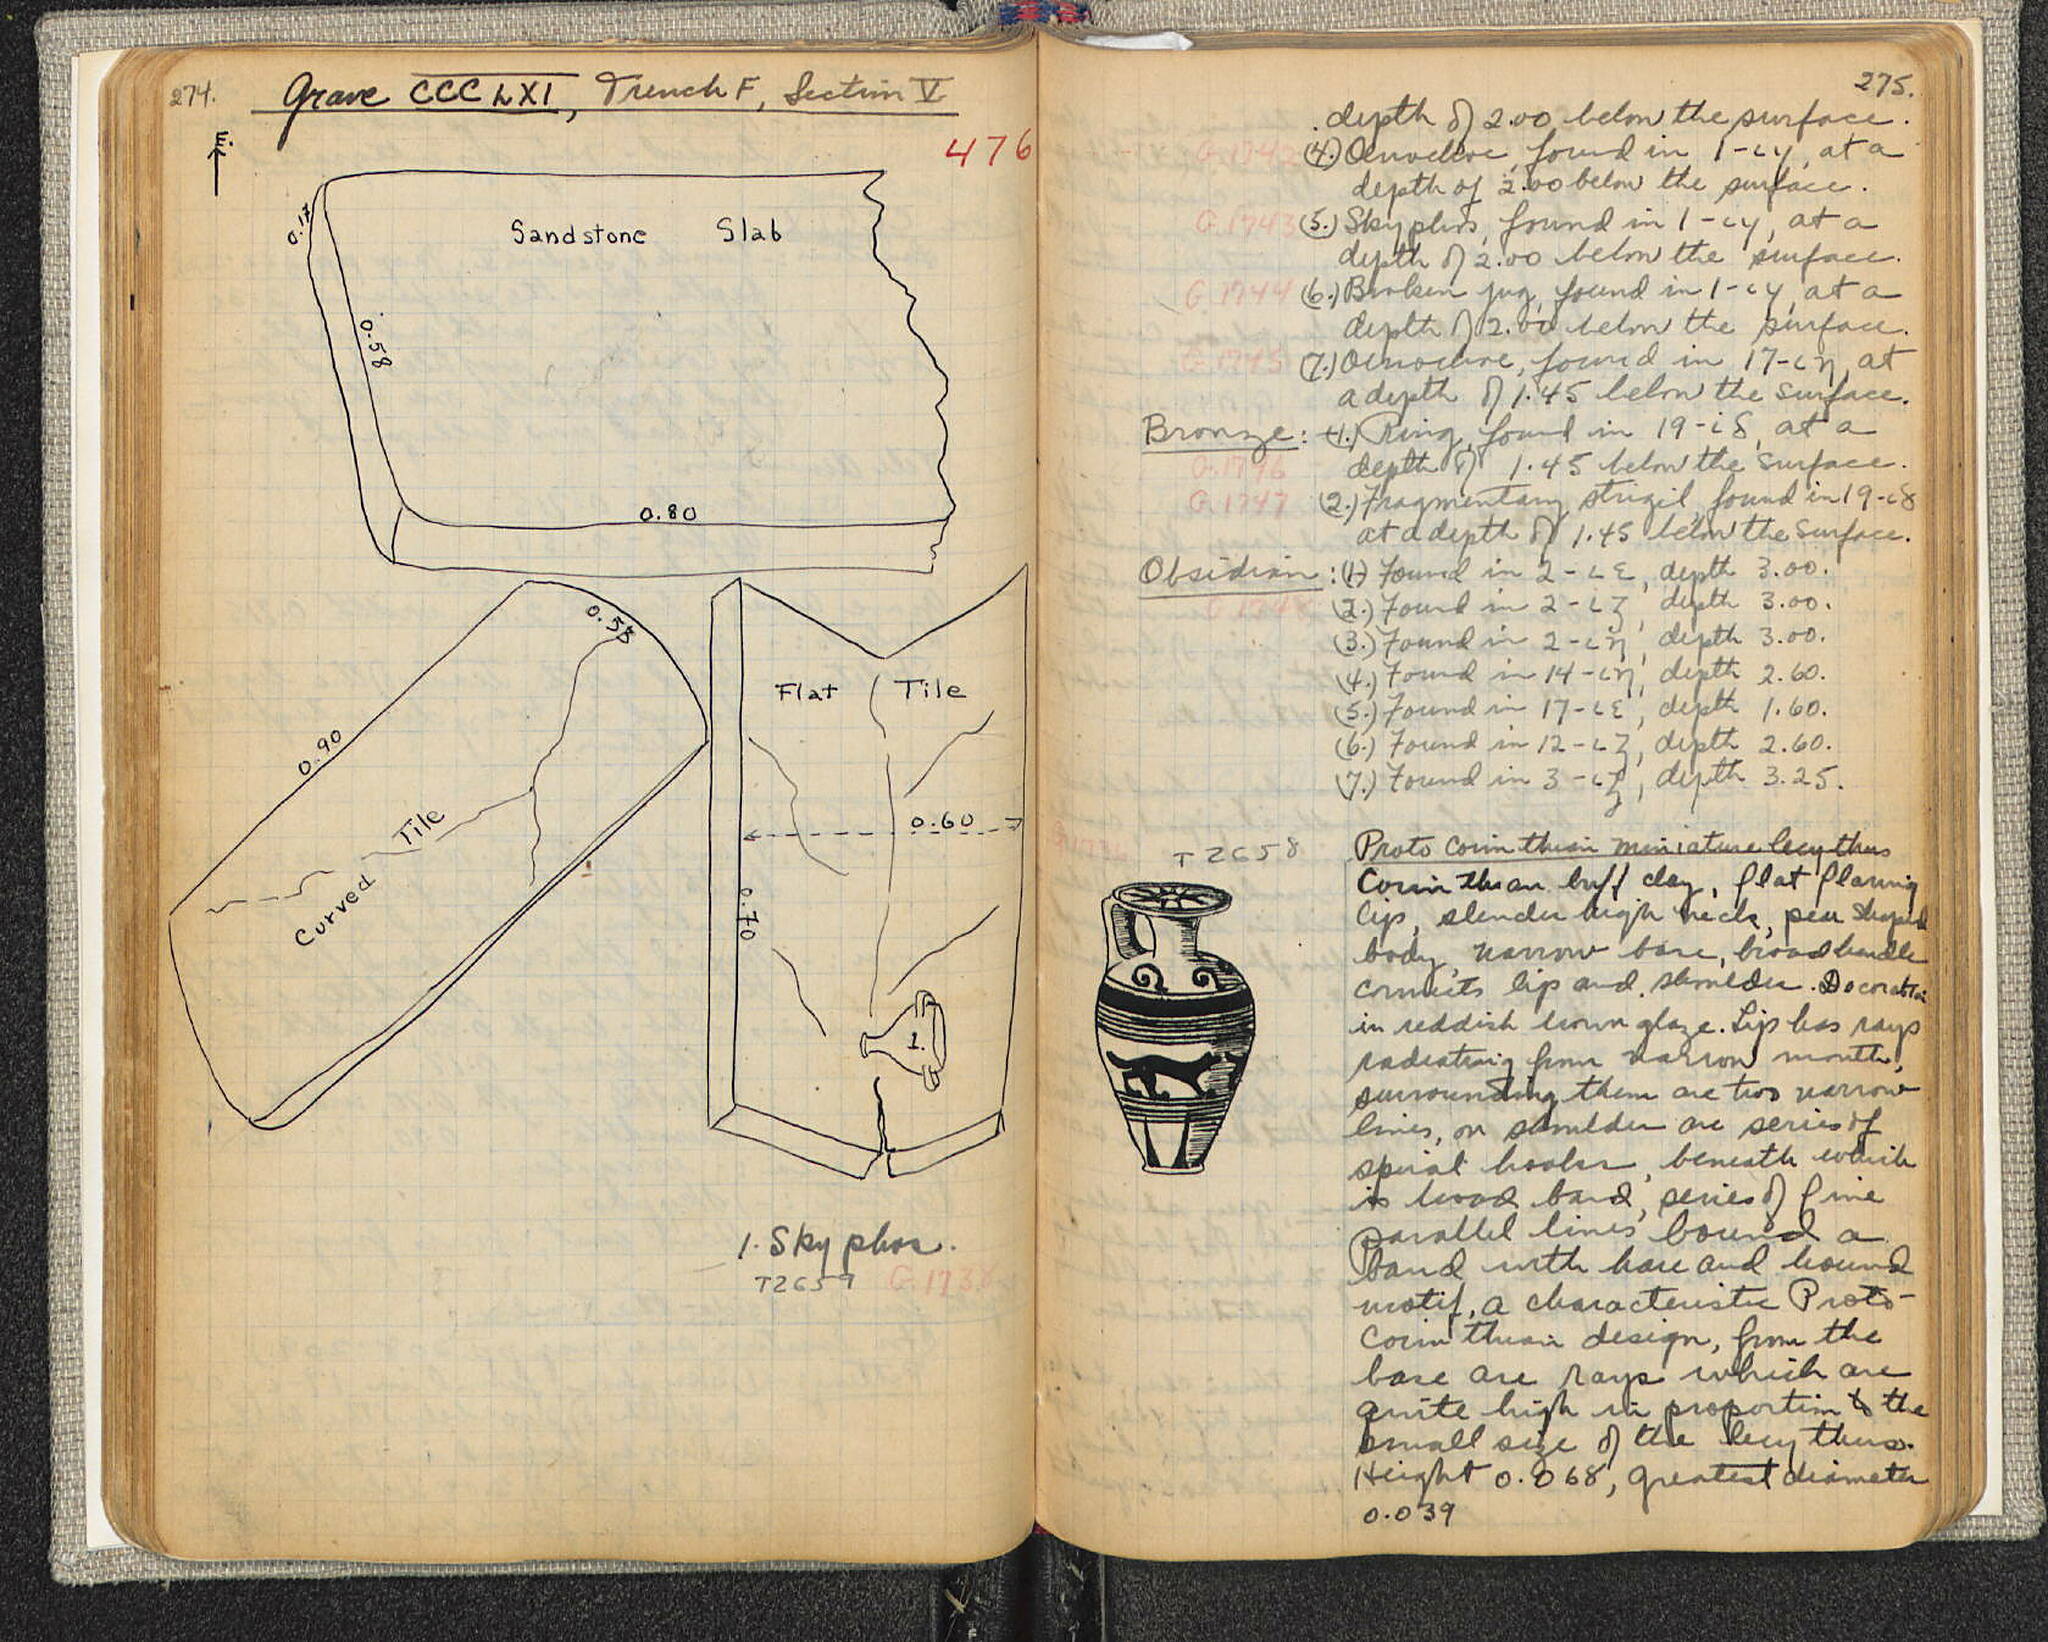 274.
Grave CCCLXI, Trench F, Section V
E.
476
0.17
Sandstone Slab
0.58
0.80
0.58
0.90
Curved Tile
Flat Tile
0.60
0.70
1.
1. Skyphos.
T2659
275.
depth of 2.00 below the surface.
(4.) Oenochoe, found in 1-ιγ, at a
depth of 2.00 below the surface.
G.1743 (5.) Skyphos, found in 1-ιγ, at a
depth of 2.00 below the surface.
G.1744 (6.) Broken jug, found in 1-ιγ, at a
depth of 2.00 below the surface.
G.1745 (7.) Oenochoe, found in 17-ιη, at
a depth of 1.45 below the surface.
Bronze: (1.) Ring, found in 19-ιδ, at a
G.1746 depth of 1.45 below the surface.
G.1747 (2.) Fragmentary strigil, found in 19-ιδ
at a depth of 1.45 below the surface.
Obsidian: (1.) Found in 2-ιε, depth 3.00.
(2.) Found in 2-ιζ, depth 3.00.
(3.) Found in 2-ιη, depth 3.00.
(4.) Found in 14-ιη, depth 2.60.
(5.) Found in 17-ιε, depth 1.60.
(6.) Found in 12-ιζ, depth 2.60.
(7.) Found in 3-ιζ, depth 3.25.
T2658
Proto Corinthian miniature lecythus
Corinthian buff clay, flat flaring
lip, slender high neck, pear shaped
body, narrow base, broad handle
connects lip and shoulder. Decoration
in reddish brown glaze. Lip has rays
radiating from narrow mouth,
surrounding them are two narrow
lines, on shoulder are series of
spiral hooks, beneath which
is broad band, series of fine
parallel lines bound a
band with hare and hound
motif, a characteristic Proto-
Corinthian design, from the
base are rays which are
quite high in proportion to the
small size of the lecythus.
Height 0.068, greatest diameter
0.039